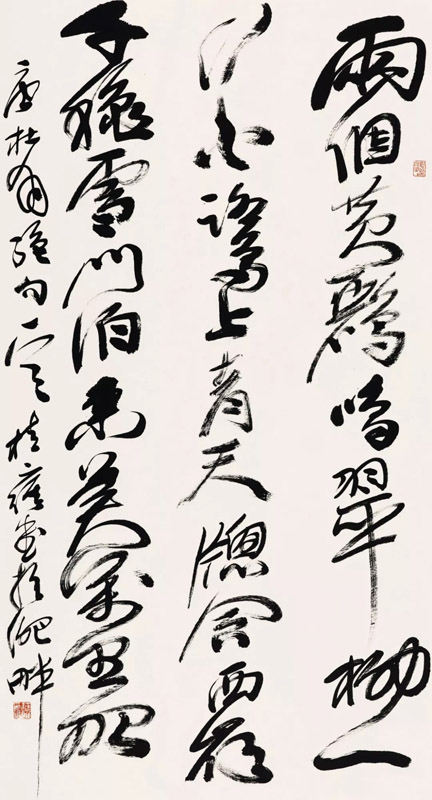 兩個黃鸝鳴翠柳一
行白鷺上青天牕含西嶺
千秋雪門泊東吳萬里船
唐杜甫絕句一首桂雍書於淝畔